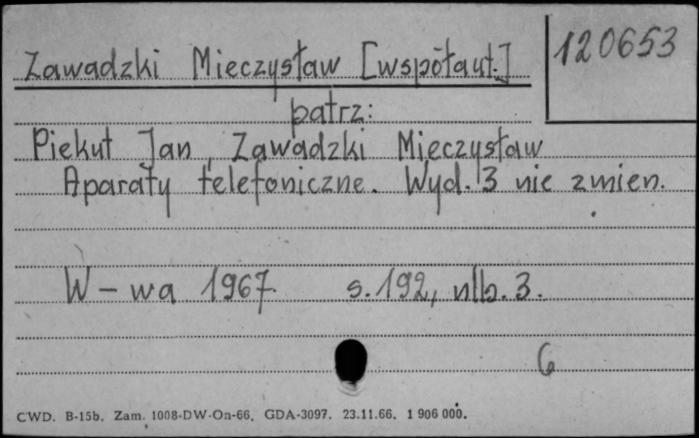 120653
Zawadzki Mieczysław [współaut.]
patrz:
Piekut Jan, Zawadzki Mieczysław
Aparaty telefoniczne. Wyd. 3 nie zmien.
W-wa 1967. s. 192, nlb. 3.
6
CWD. B-15b. Zam. 1008-DW-On-66. GDA-3097. 23.11.66. 1 906 000.